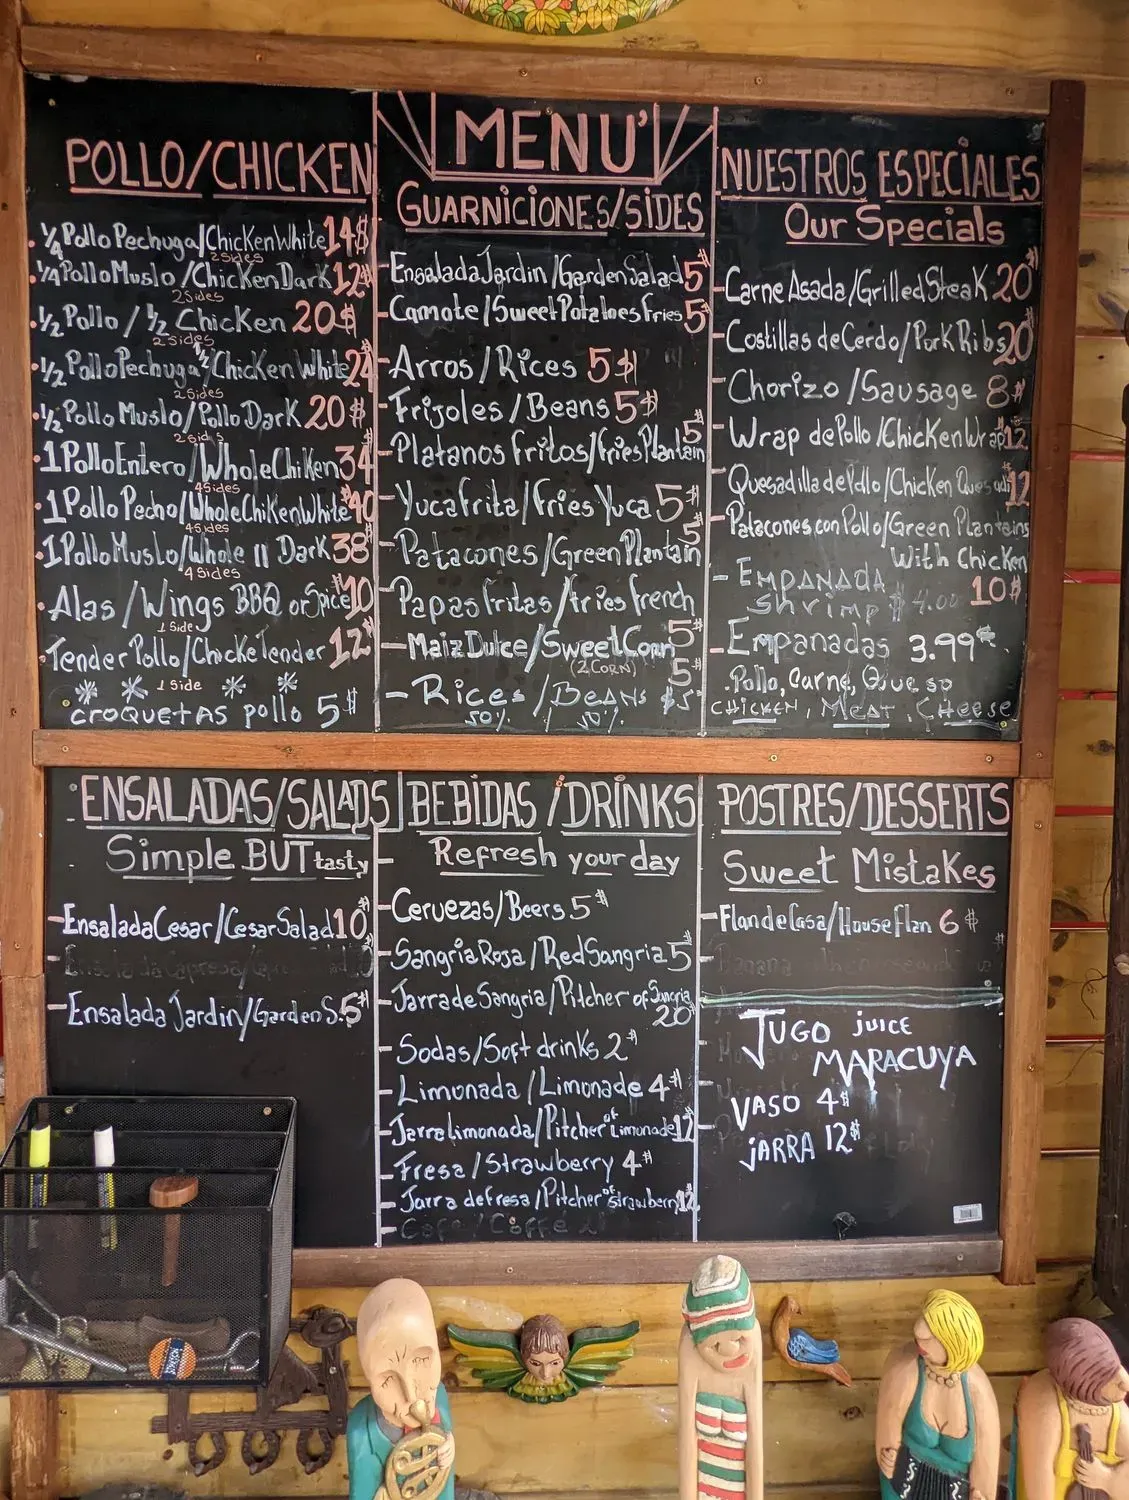 MENU'
POLLO/CHICKEN
• 1/4 Pollo Pechuga/Chicken White 14$
2 Sides
• 1/4 Pollo Muslo/Chicken Dark 12$
2 Sides
• 1/2 Pollo / 1/2 Chicken 20$
2 Sides
• 1/2 Pollo Pechuga 1/2 Chicken White 24$
2 Sides
• 1/2 Pollo Muslo/Pollo Dark 20$
2 Sides
• 1 Pollo Entero/Whole Chiken 34$
4 Sides
• 1 Pollo Pecho/Whole Chiken White $40
4 Sides
• 1 Pollo Muslo/Whole 11 Dark 38$
4 Sides
• Alas/Wings BBQ or Spice $10
1 Side
• Tender Pollo/Chicke Tender 12$
1 Side
CROQUETAS pollo 5$
GUARNICIONES/SIDES
- Ensalada Jardin/Garden Salad 5$
- Camote/Sweet Potatoes Fries 5$
- Arros/Rices 5$
- Frijoles/Beans 5$
- Platanos Fritos/Fries Plantain 5$
- Yuca Frita/Fries Yuca 5$
- Patacones/Green Plantain 5$
- Papas Fritas/fries french
- Maiz Dulce/Sweet Corn 5$
(2 CORN)
5$
- Rices/BEANS $5
50% 50%
NUESTROS ESPECIALES
Our Specials
- Carne Asada/Grilled Steak 20$
- Costillas de Cerdo/Pork Ribs 20$
- Chorizo/Sausage 8$
- Wrap de Pollo/Chicken Wrap 12$
- Quesadilla de Pollo/Chicken Quesadi 12$
- Patacones con Pollo/Green Plantains
With Chicken
10$
- EMPANADA
Shrimp $4.00
- Empanadas 3.99$
.Pollo, Carne, Queso
CHICKEN, MEAT, CHEESE
ENSALADAS/SALADS
Simple BUT tasty
- Ensalada Cesar/Cesar Salad 10$
- Ensalada Jardin/Garden S. 5$
BEBIDAS/DRINKS
Refresh your day
- Cervezas/Beers 5$
- Sangria Roja/Red Sangria 5$
- Jarra de Sangria/Pitcher of Sangria
20$
- Sodas/Soft drinks 2$
- Limonada/Limonade 4$
- Jarra Limonada/Pitcher of Limonade 12$
- Fresa/Strawberry 4$
- Jarra de Fresa/Pitcher of Strawberry 12$
POSTRES/DESSERTS
Sweet Mistakes
- Flan de Casa/House Flan 6$
JUGO juice
MARACUYA
VASO 4$
jARRA 12$